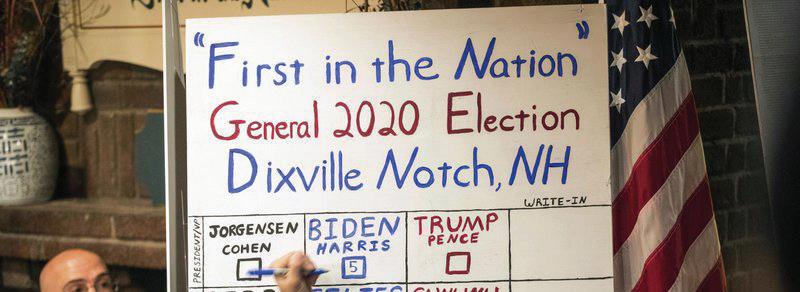 "First in the Nation"
General 2020 Election
Dixville Notch, NH
WRITE-IN
PRESIDENT/VP
JORGENSEN
COHEN
BIDEN
HARRIS
5
TRUMP
PENCE